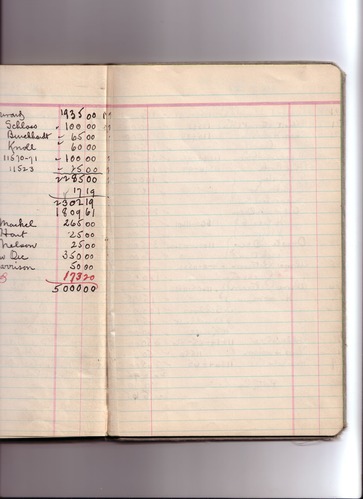 1935 00
Schloss 100 00
Burckhardt 65 00
Knoll 60 00
11570-71 100 00
11523 25 00
2285 00
17 19
2302 19
1809 61
Markel 265 00
Hart 25 00
Nelson 25 00
Dec 350 00
arrison 50 00
173 20
5000 00